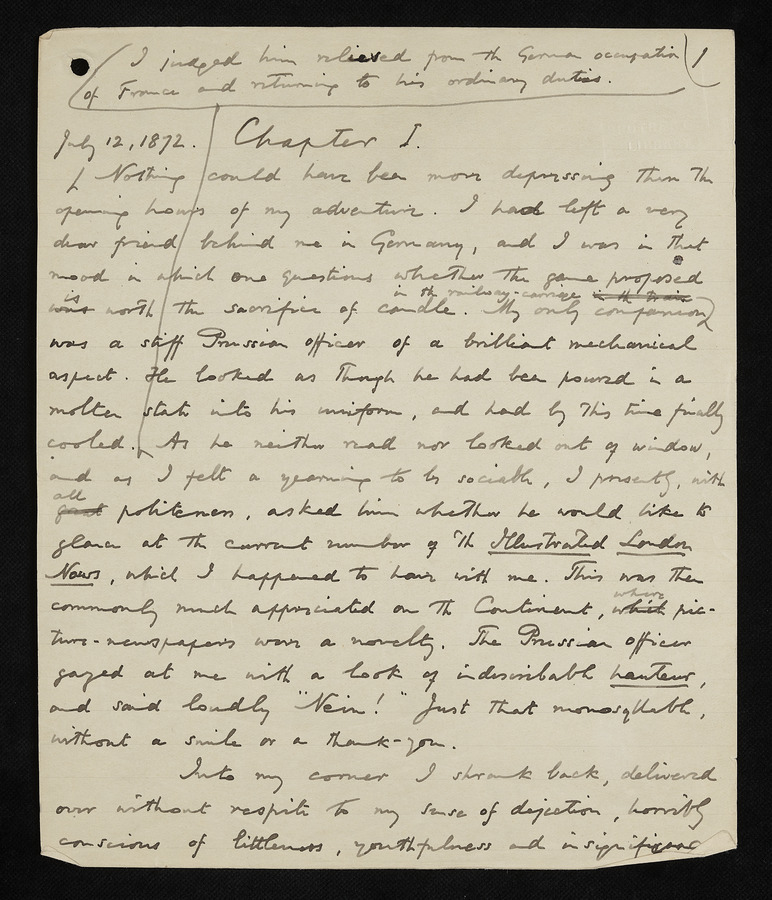 I judged him relieved from th German occupation 1
of France and returning to his ordinary duties.
July 12, 1872. Chapter I.
Nothing could have been more depressing than th
opening hours of my adventure. I had left a very
dear friend behind me in Germany, and I was in that
mood in which one questions whether the game proposed
is in th railway-carriage in th train
was worth the sacrifice of candle. My only companion
was a stiff Prussian officer of a brilliant mechanical
aspect. He looked as though he had been poured in a
molten state into his uniform, and had by this time finally
cooled. As he neither read nor looked out of window,
and as I felt a yearning to be sociable, I presently, with
all
great politeness, asked him whether he would like to
glance at th current number of th Illustrated London
News, which I happened to have with me. This was then
where
commonly much appreciated on th Continent, which pic-
ture-newspapers were a novelty. The Prussian officer
gazed at me with a look of indescribable hauteur,
and said loudly "Nein!" Just that monosyllable,
without a smile or a thank-you.
Into my corner I shrank back, delivered
over without respite to my sense of dejection, horribly
conscious of littleness, youthfulness and insignificance